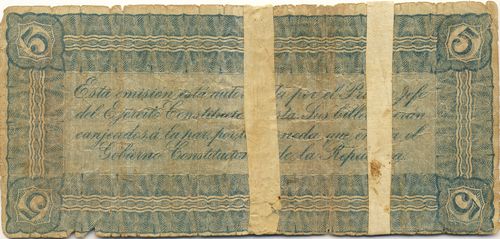 5 5
Esta emisión está auto da por el P Jefe
del Ejército Constituci sta. Los bille eran
canjeados á la par, por neda que em a el
Gobierno Constitucion de la Repú a.
5 5